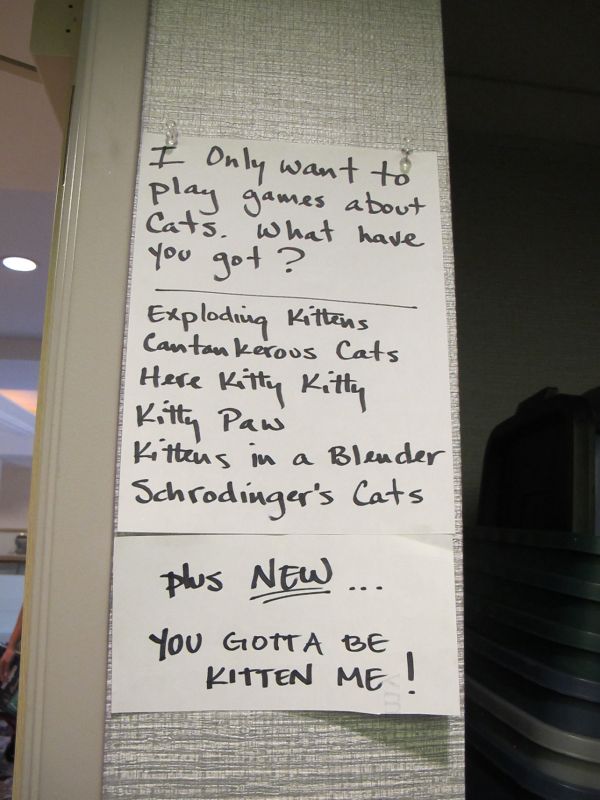 I Only want to
play games about
Cats. What have
you got?
Exploding Kittens
Cantankerous Cats
Here Kitty Kitty
Kitty Paw
Kittens in a Blender
Schrodinger's Cats
plus NEW...
YOU GOTTA BE
KITTEN ME!